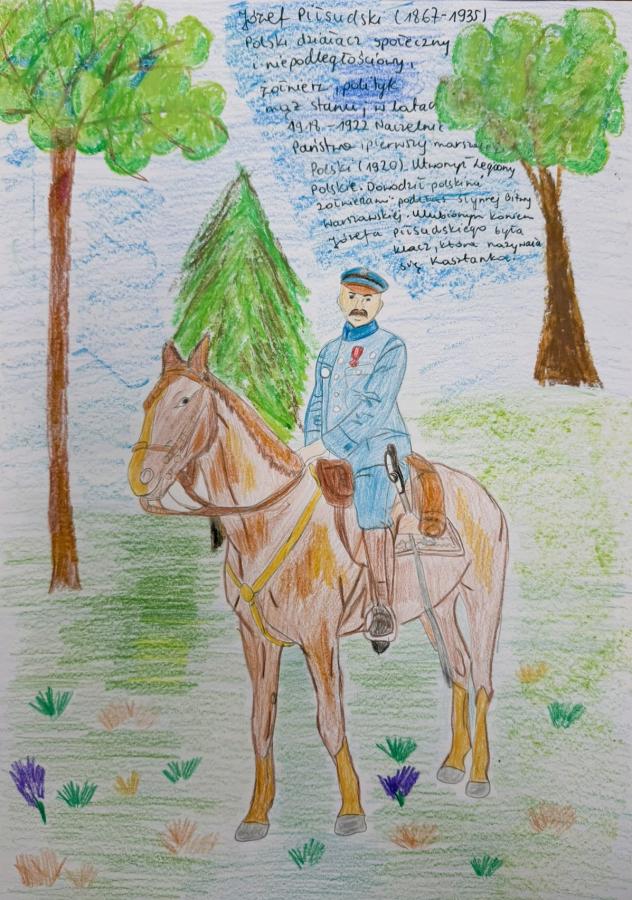 Józef Piłsudski (1867-1935)
Polski działacz społeczny
i niepodległościowy,
żołnierz, polityk
mąż stanu, w latach
1918-1922 Naczelnik
Państwa i pierwszy marszałek
Polski (1920). Utworzył Legiony
Polskie. Dowodził polskimi
żołnierzami podczas słynnej Bitwy
Warszawskiej. Ulubionym koniem
Józefa Piłsudskiego była
klacz, która nazywała
się Kasztanka.